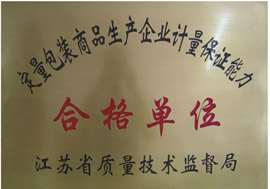 定量包装商品生产企业计量保证能力
合格单位
江苏省质量技术监督局